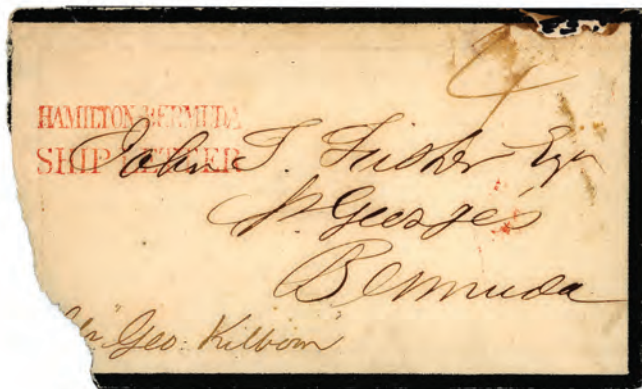 4
HAMILTON BERMUDA
SHIP LETTER
John T. Fisher Esqr
St. Georges
Bermuda
"Geo: Kilborn"